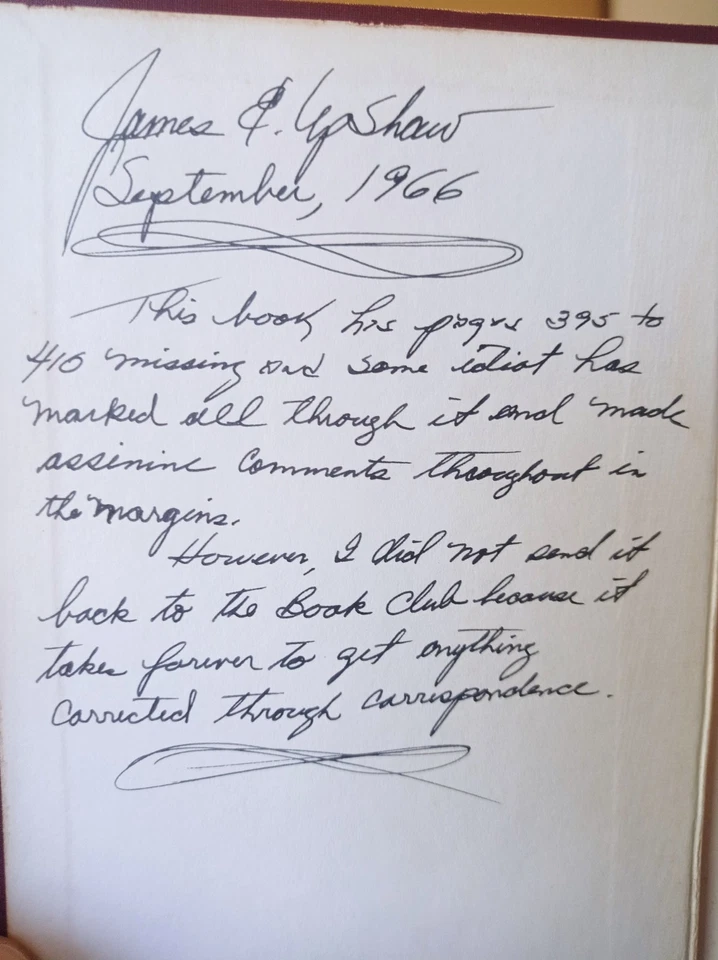 James E. UpShaw
September, 1966
This book has pages 395 to
410 missing and some idiot has
marked all through it and made
assinine comments throughout in
the margins.
However, I did not send it
back to the Book Club because it
takes forever to get anything
corrected through correspondence.